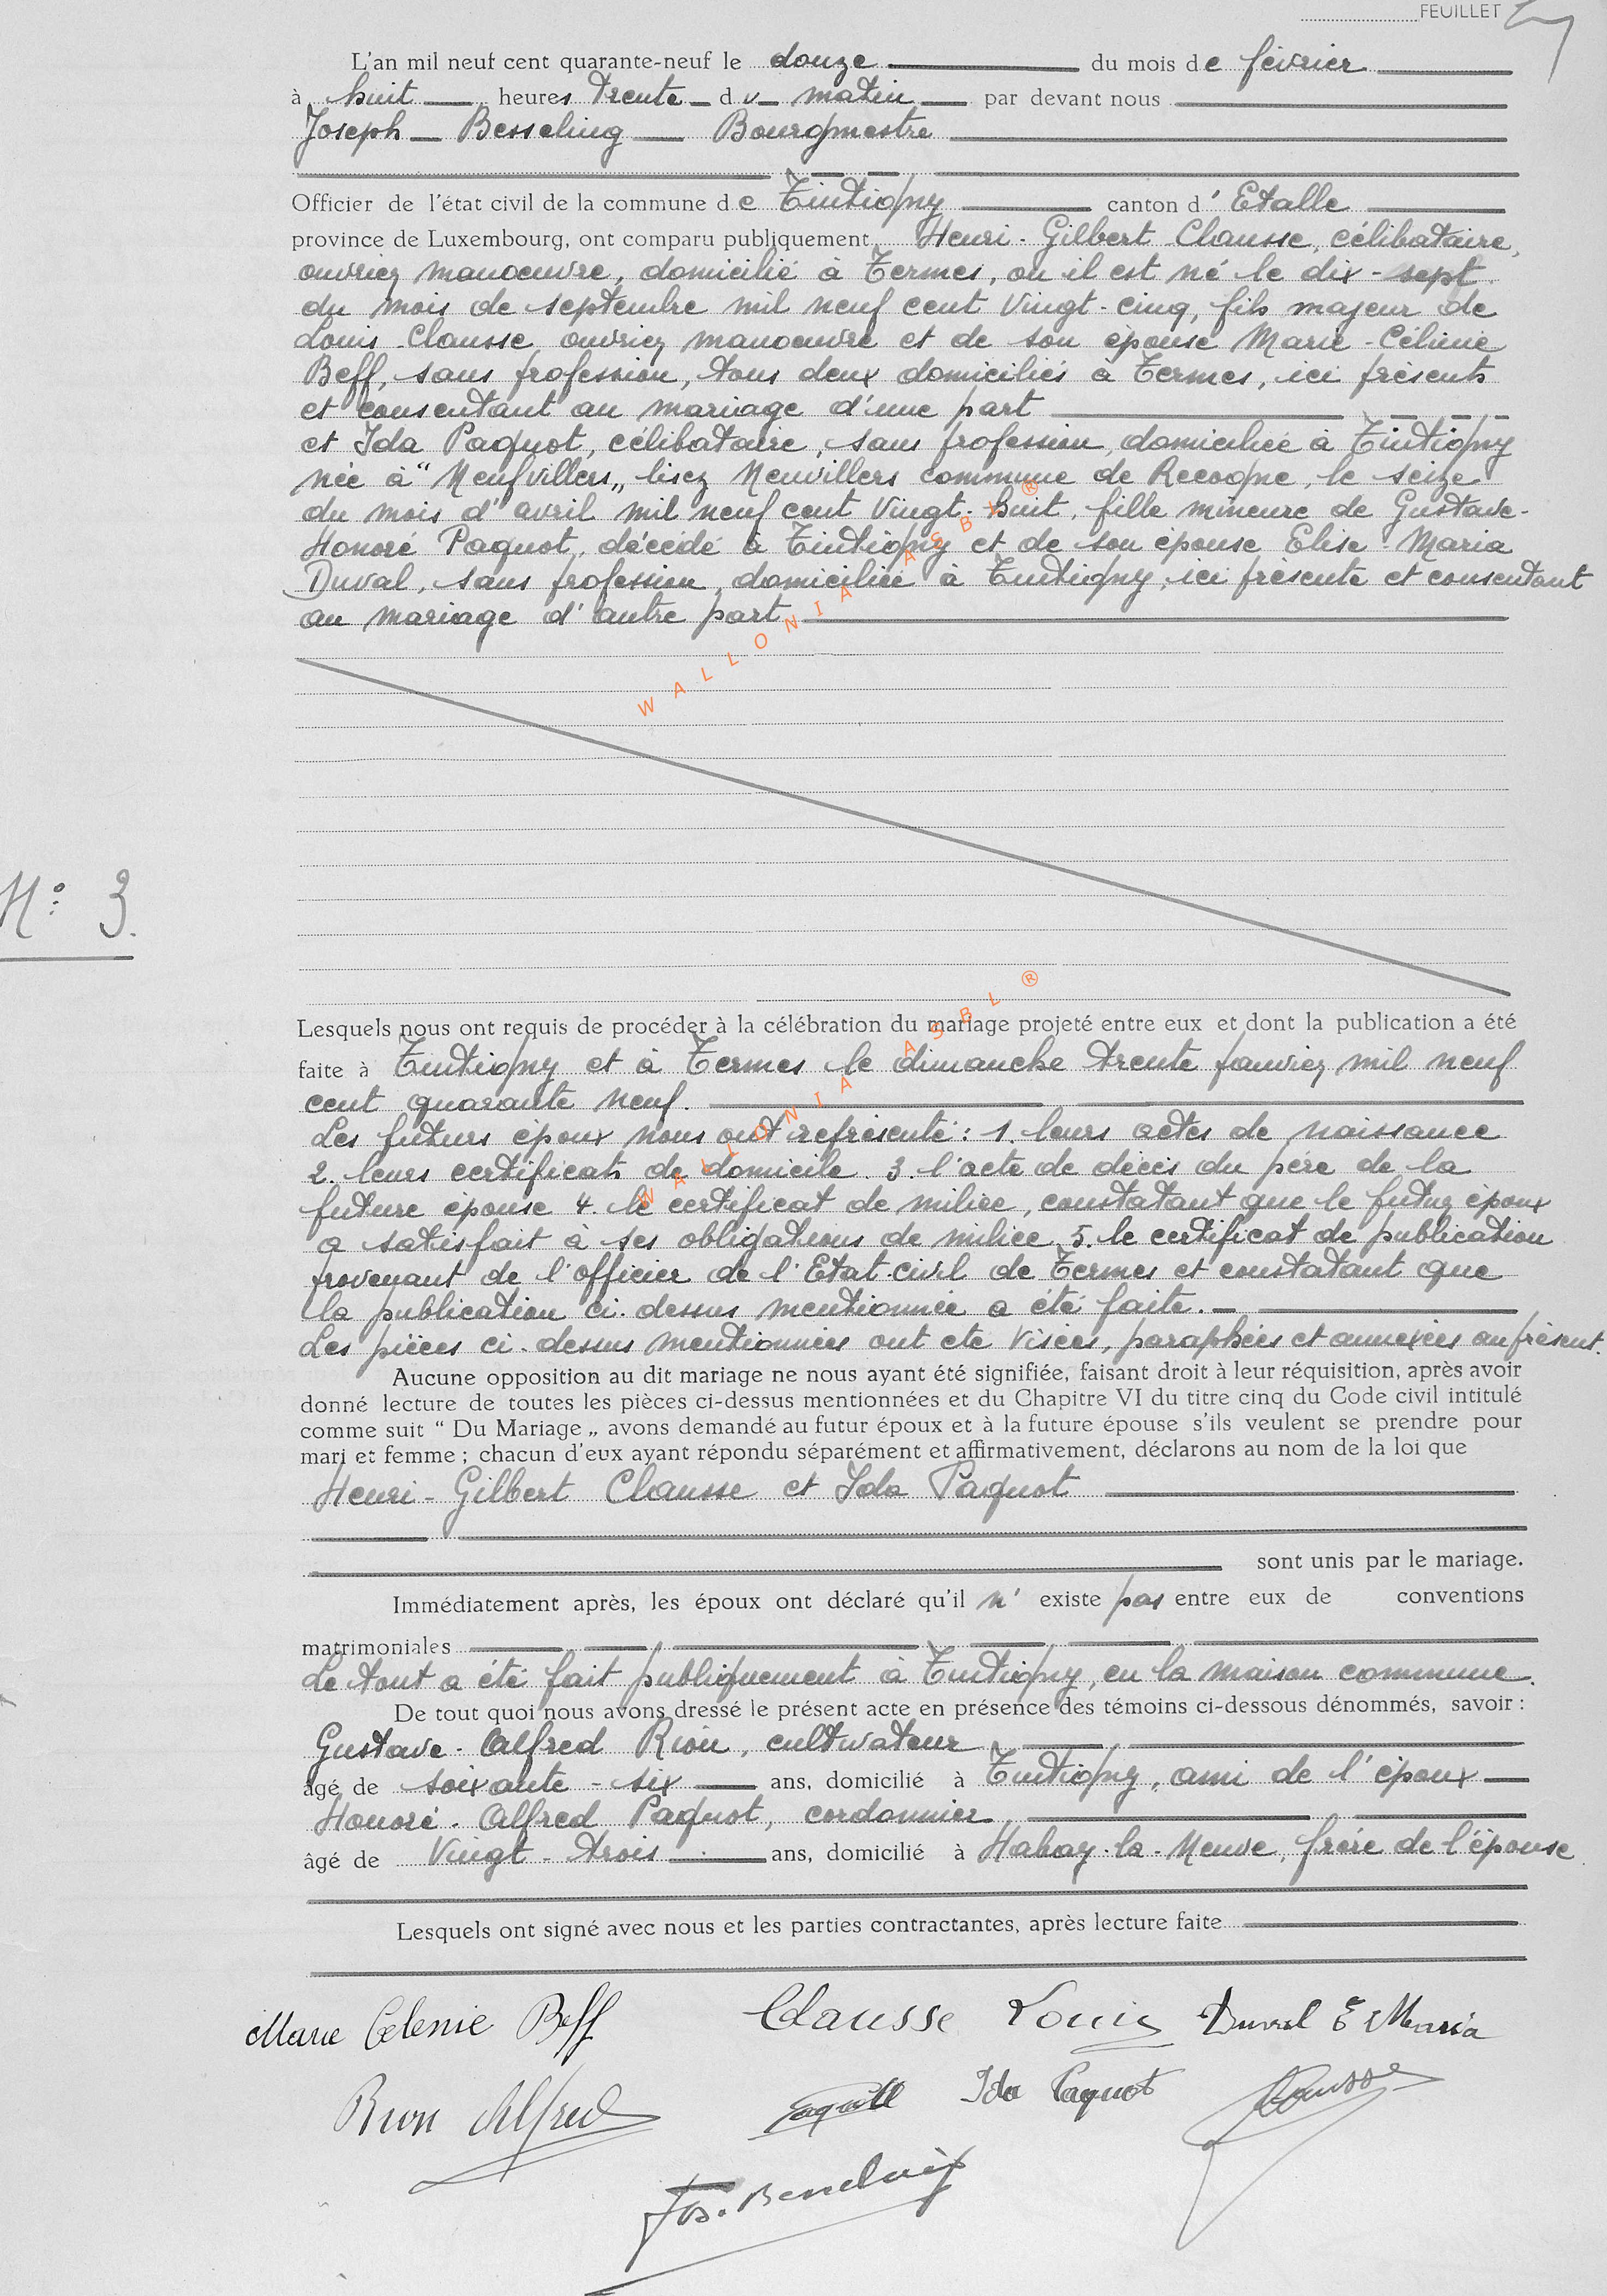 FEUILLET
L'an mil neuf cent quarante-neuf le douze du mois de février
à huit heures trente du matin par devant nous
Joseph Besseling Bourgmestre
Officier de l'état civil de la commune de Tintigny canton d'Etalle
province de Luxembourg, ont comparu publiquement Henri-Gilbert Clausse, célibataire,
ouvrier manoeuvre, domicilié à Termes, où il est né le dix-sept
du mois de septembre mil neuf cent vingt-cinq, fils majeur de
Louis Clausse ouvrier manoeuvre et de son épouse Marie-Célinie
Beff, sans profession, tous deux domiciliés à Termes, ici présents
et consentant au mariage d'une part
et Ida Paquot, célibataire, sans profession, domiciliée à Tintigny
née à "Neufvillers„ lisez Neuvillers commune de Recogne, le seize
du mois d'avril mil neuf cent vingt-huit, fille mineure de Gustave-
Honoré Paquot, décédé à Tintigny et de son épouse Elise-Maria
Duval, sans profession, domiciliée à Tintigny, ici présente et consentant
au mariage d'autre part
WALLONIA ASBL ®
N° 3.
WALLONIA ASBL ®
Lesquels nous ont requis de procéder à la célébration du mariage projeté entre eux et dont la publication a été
faite à Tintigny et à Termes le dimanche trente janvier mil neuf
cent quarante neuf.
Les futurs époux nous ont représenté : 1. leurs actes de naissance
2. leurs certificats de domicile. 3. l'acte de décès du père de la
future épouse 4. le certificat de milice, constatant que le futur époux
a satisfait à ses obligations de milice 5. le certificat de publication
provenant de l'officier de l'Etat-civil de Termes et constatant que
la publication ci-dessus mentionnée a été faite.
Les pièces ci-dessus mentionnées ont été visées, paraphées et annexées au présent.
Aucune opposition au dit mariage ne nous ayant été signifiée, faisant droit à leur réquisition, après avoir
donné lecture de toutes les pièces ci-dessus mentionnées et du Chapitre VI du titre cinq du Code civil intitulé
comme suit " Du Mariage „ avons demandé au futur époux et à la future épouse s'ils veulent se prendre pour
mari et femme ; chacun d'eux ayant répondu séparément et affirmativement, déclarons au nom de la loi que
Henri-Gilbert Clausse et Ida Paquot
sont unis par le mariage.
Immédiatement après, les époux ont déclaré qu'il n'existe pas entre eux de conventions
matrimoniales
Le tout a été fait publiquement à Tintigny, en la maison commune.
De tout quoi nous avons dressé le présent acte en présence des témoins ci-dessous dénommés, savoir :
Gustave-Alfred Rion, cultivateur
âgé de soixante-six ans, domicilié à Tintigny, ami de l'époux
Honoré-Alfred Paquot, cordonnier
âgé de vingt-trois ans, domicilié à Habay-la-Neuve, frère de l'épouse
Lesquels ont signé avec nous et les parties contractantes, après lecture faite
Marie Célenie Beff Clausse Louis Duval E Maria
Rion Alfred Ida Paquot Clausse